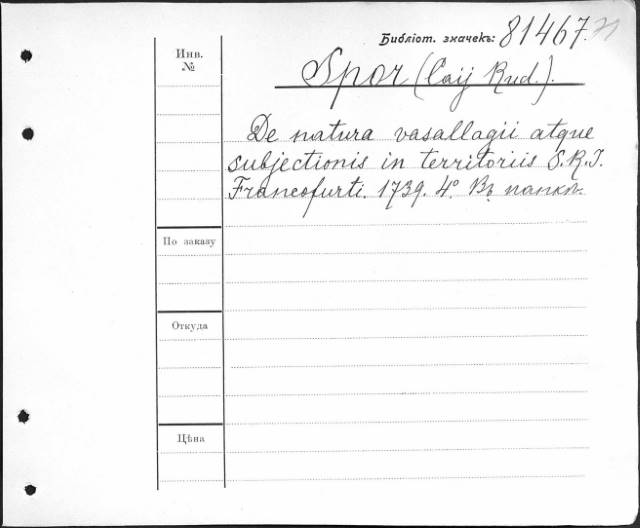 Библіот. значекъ: 81467.
Инв.
№
Spor (Caij Rud.).
De natura vasallagii atque
subjectionis in territoriis S. R. I.
Francofurti. 1739. 4° Въ папкѣ.
По заказу
Откуда
Цѣна